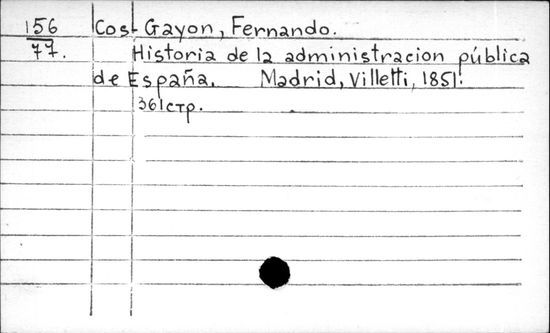 156 Cos-Gayon, Fernando.
77. Historia de la administracion pública
de España. Madrid, Villetti, 1851.
361стр.